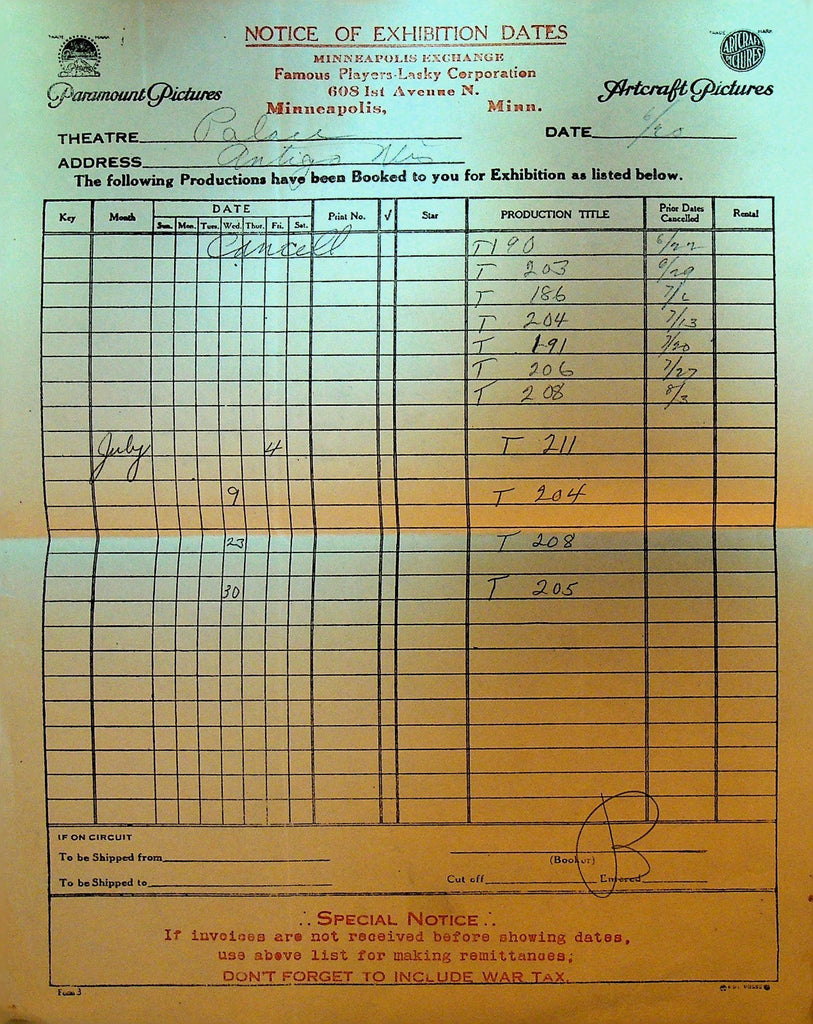 NOTICE OF EXHIBITION DATES
TRADE MARK
TRADE MARK
ARTCRAFT PICTURES
MINNEAPOLIS EXCHANGE
Famous Players-Lasky Corporation
608 1st Avenue N.
Minneapolis, Minn.
Paramount Pictures
Artcraft Pictures
THEATRE Palace DATE 6/20
ADDRESS Antigo Wis
The following Productions have been Booked to you for Exhibition as listed below.
Key Month DATE Print No. √ Star PRODUCTION TITLE Prior Dates Cancelled Rental
Sun. Mon. Tues. Wed. Thur. Fri. Sat.
Cancell T 190 6/22
T 203 6/29
T 186
T 204 7/13
T 191 7/20
T 206 7/27
T 208 8/3
July 4 T 211
9 T 204
23 T 208
30 T 205
IF ON CIRCUIT
To be Shipped from
(Booker)
B
To be Shipped to Cut off Entered
∴ SPECIAL NOTICE ∴
If invoices are not received before showing dates,
use above list for making remittances;
DON'T FORGET TO INCLUDE WAR TAX.
Form 3